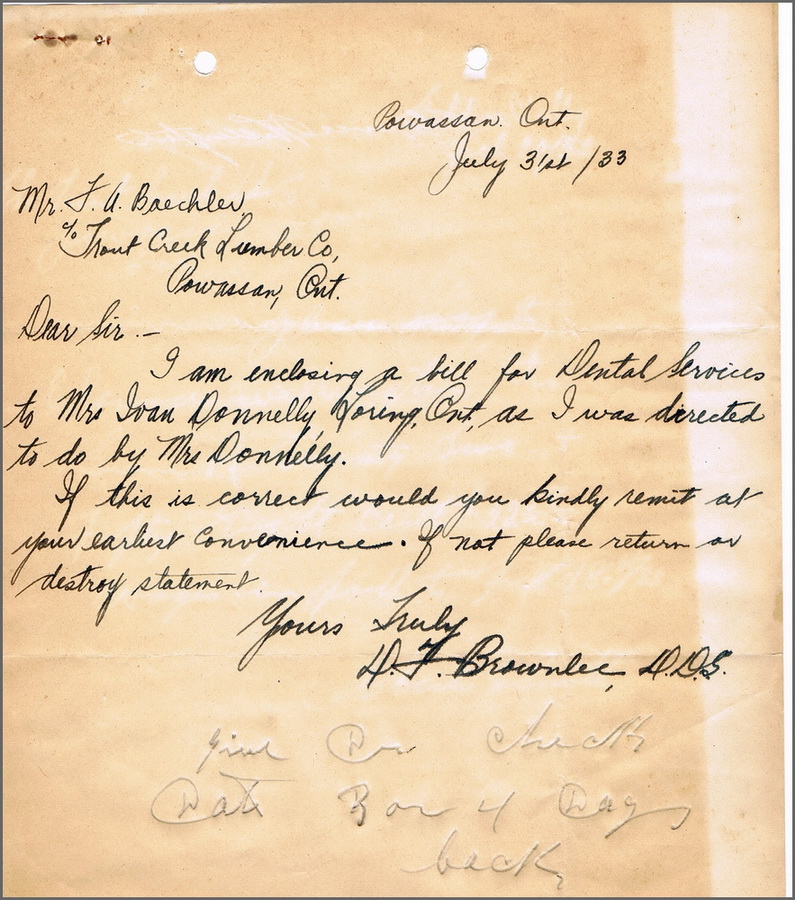 Powassan. Ont.
July 31st /33
Mr. F. A. Baechler,
c/o Trout Creek Lumber Co,
Powassan, Ont.
Dear Sir.-
I am enclosing a bill for Dental Services
to Mrs Ivan Donnelly, Loring, Ont, as I was directed
to do by Mrs Donnelly.
If this is correct would you kindly remit at
your earliest convenience. If not please return or
destroy statement.
Yours Truly
D. F. Brownlee, D.D.S.
give Dr check
Date 3 or 4 Days
back